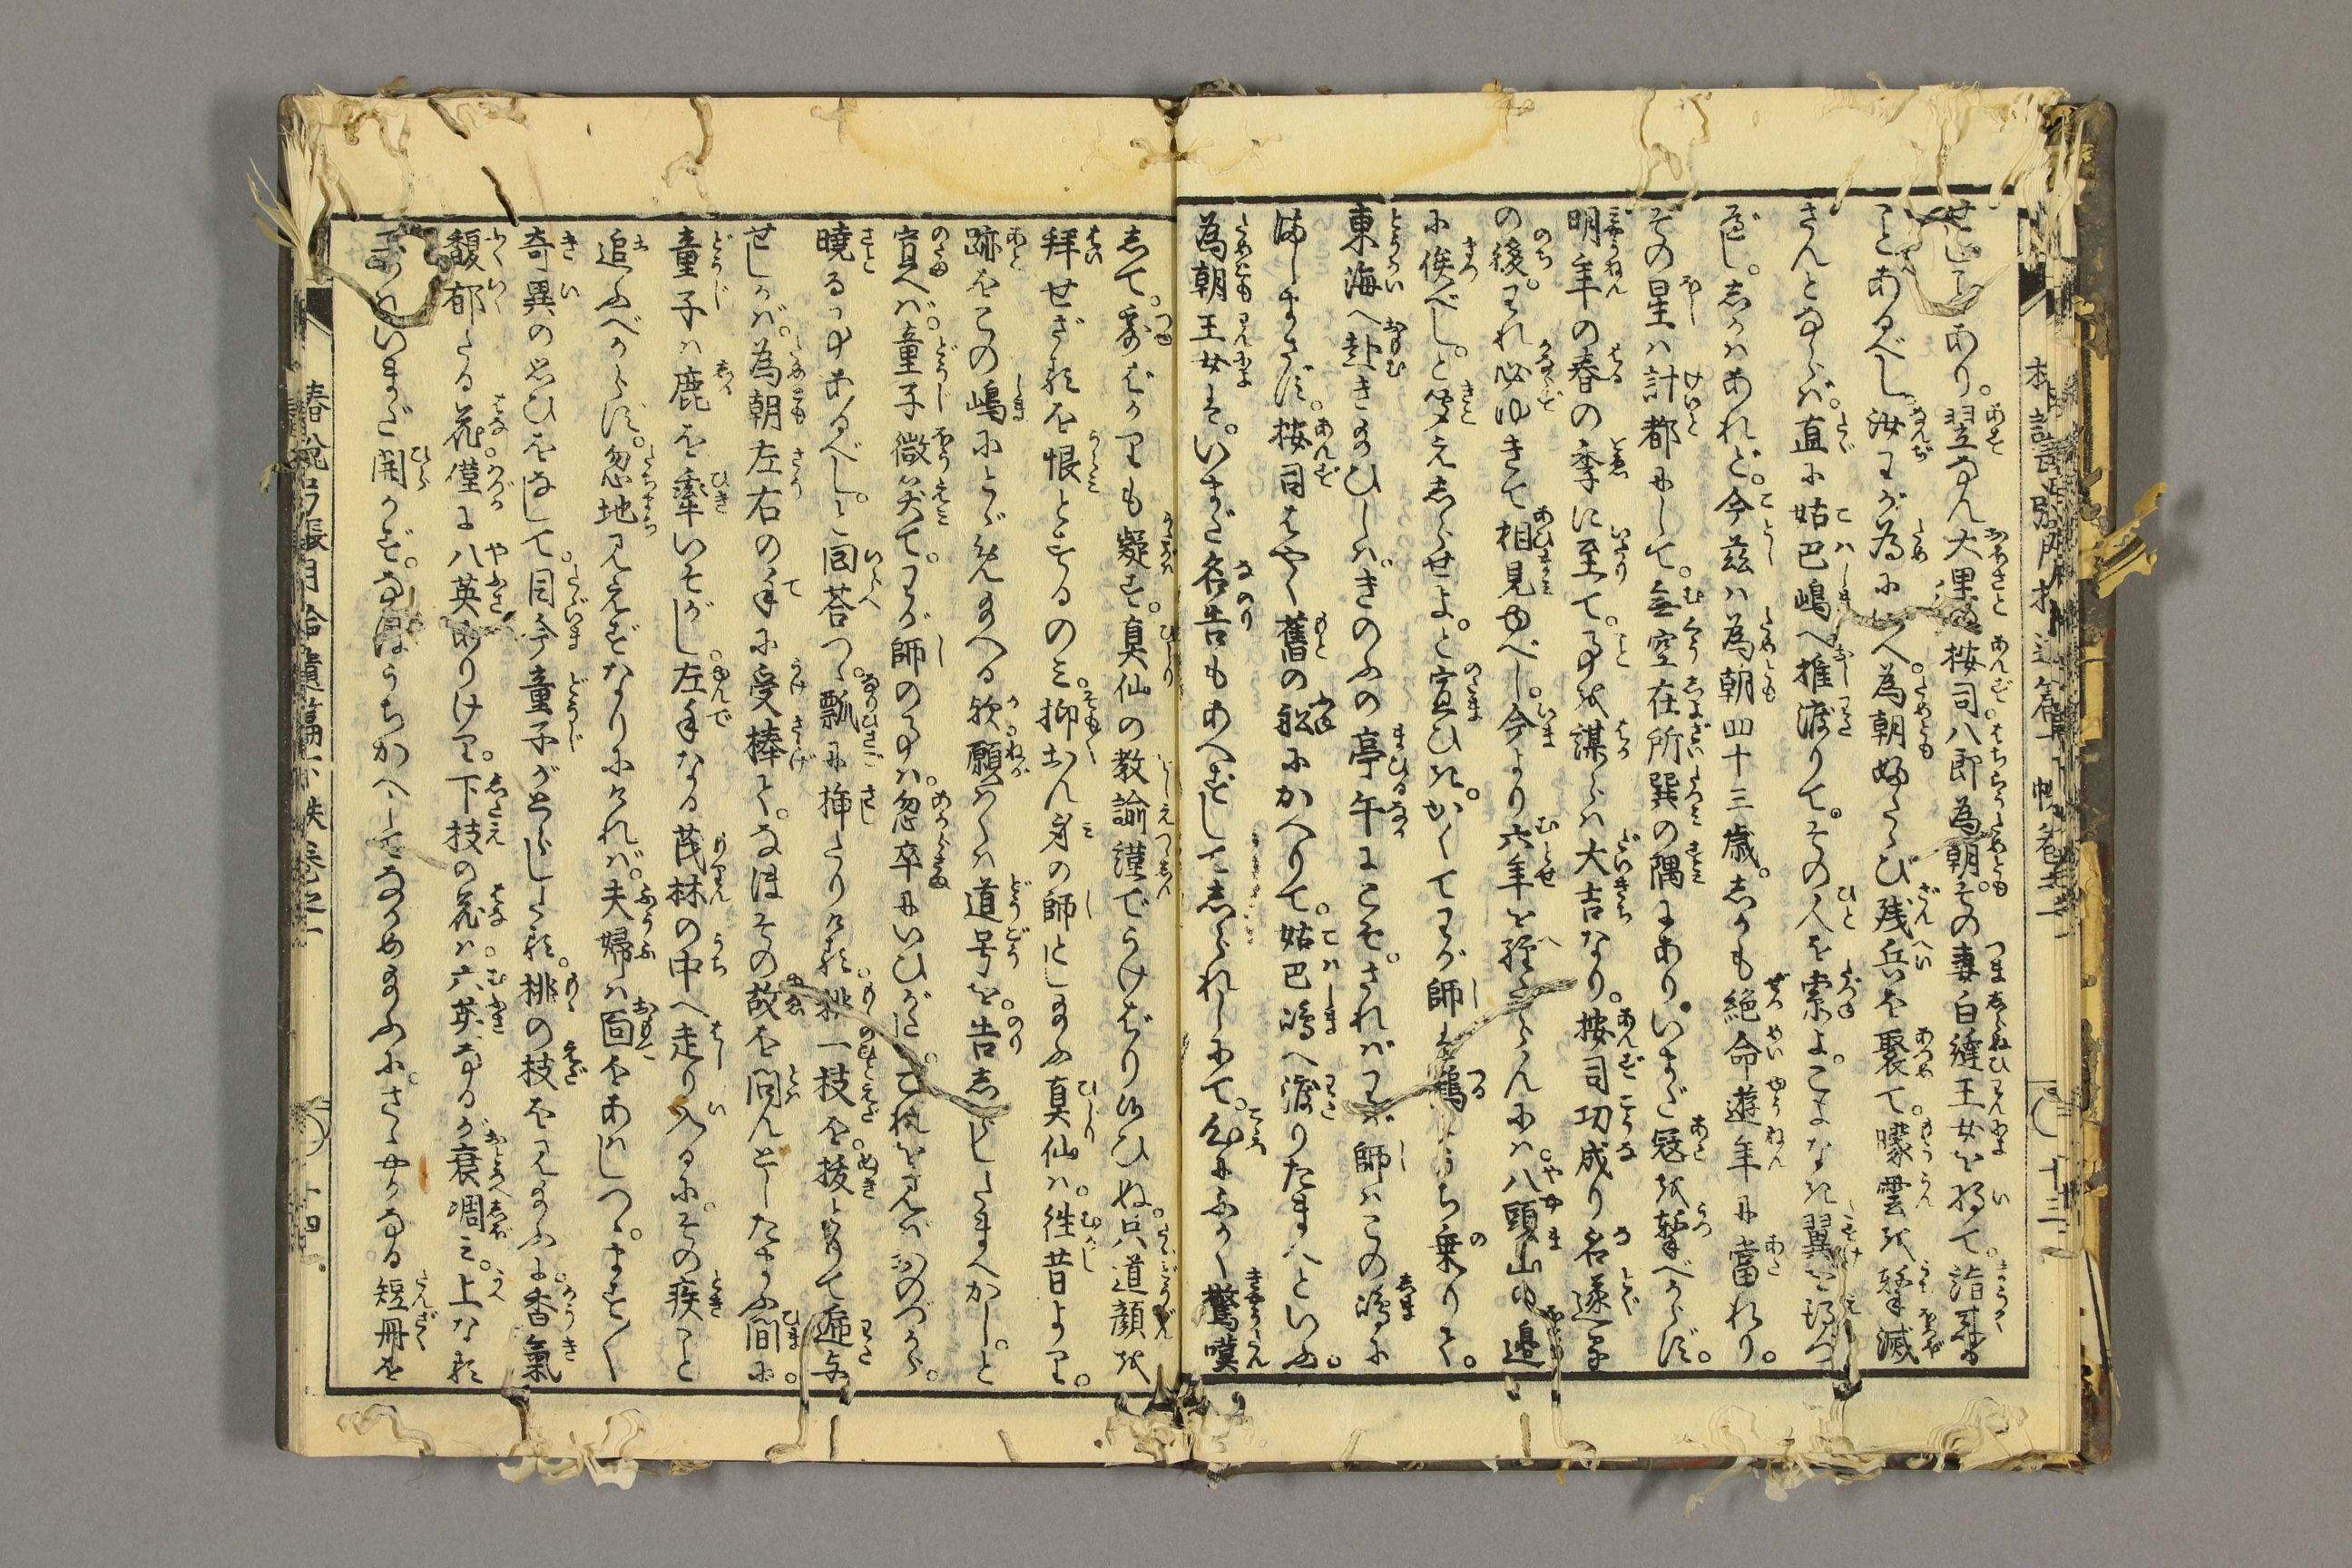 せしことあり。翌なん大里の按司八郎為朝。その妻白縫王女を将て。詣来る
ことあるべし。汝わが為に　為朝ふたゝび残兵を聚て。曚雲を撃滅
さんとならば。直に姑巴嶋へ推渡りて。その人を索よ。こよなき翼を得つ
べし。しかはあれど。今茲は為朝四十三歳。しかも絶命遊年に當れり。
その星は計都にして。無空在所巽の隅にあり。いまだ寇を撃べからず。
明年の春の季に至て。事を謀らは大吉なり。按司功成り名遂て
の後。われ必ゆきて相見ゆべし。今より六年を経たらんには。八頭山の邉
に俟べし。と聞えしらせよ。と宣ひき。かくてわが師は鶴にうち乗りて。
東海へ赴き給ひしは。きのふの亭午にこそ。さればわが師はこの嶋に
海しまさず。按司はやく舊の舩にかへりて。姑巴嶋へ渡りたまへといふ。
為朝王女は。いまだ名告もあへずして知られしかば。心にふかく驚嘆
して。露ばかりも疑はず。真仙の教諭謹でうけ給はり候ひぬ。只道顔を
拝せざるを恨とするのみ。抑おん身の師とし給ふ真仙は。往昔より。
跡をこの嶋にとゞめ給へる歟。願くは道号を。告しらしたまへかし。と
宣へば。童子微笑て。わが師の事は。忽卒にいひがたし。これを見ばおのづから。
暁る事あるべし。と回荅つゝ。瓢に挿たりける。桃一枝を。抜とりて逓与
せしかば。為朝左右の手に受捧て。なほその故を問んとしたまふ間に。
童子は鹿を牽いそがし。左手なる茂林の中へ走り入るに。その疾こと
追ふべからず。忽地見えずなりにければ。夫婦は面をあはしつゝ。ます〳〵
奇異の思ひをなして。目今童子がとらしたる。桃の枝を見給ふに。香氣
馥郁たる花。僅に八英ありけり。下枝の花は。六英なるが衰凋み。上なる
二英はいまだ開かず。なほうちかへしてながめ給ふに。さゝやかなる短冊を
椿説弓張月拾遺篇下帙巻之一
十四